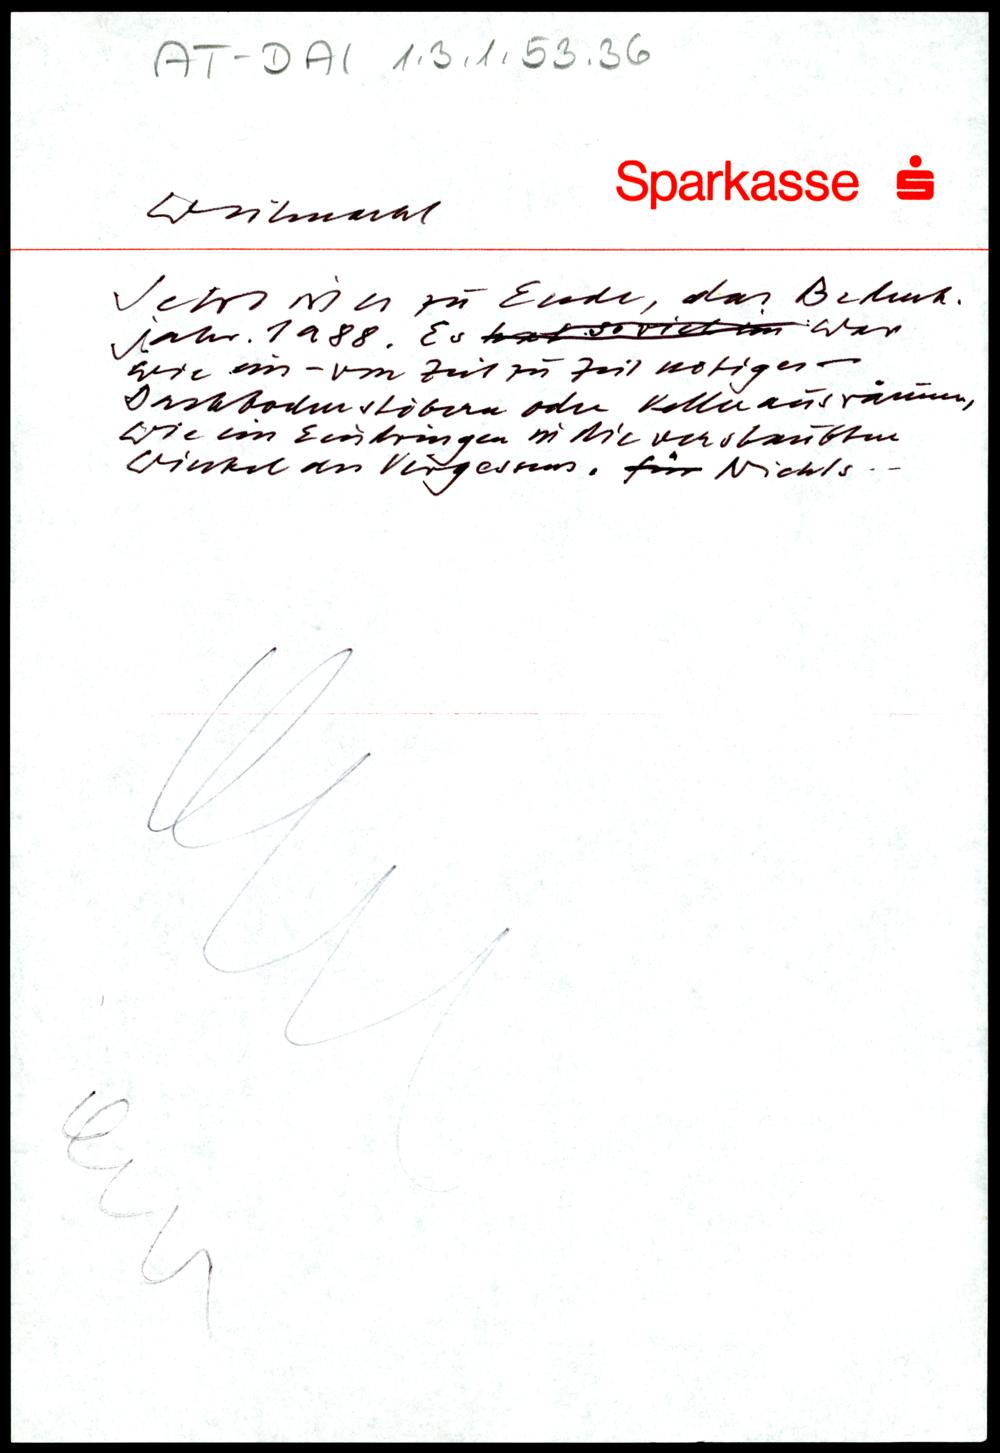 AT-DAI 1.3.1.53.36
Sparkasse
Jetzt ist es zu Ende, das Bedenk-
jahr. 1988. Es hat soviel im war
wie ein – von Zeit zu Zeit nötiges –
Dachbodenstöbern oder Kellerausräumen,
wie ein Eindringen in die verstaubten
Winkel des Vergessens. für Nichts --